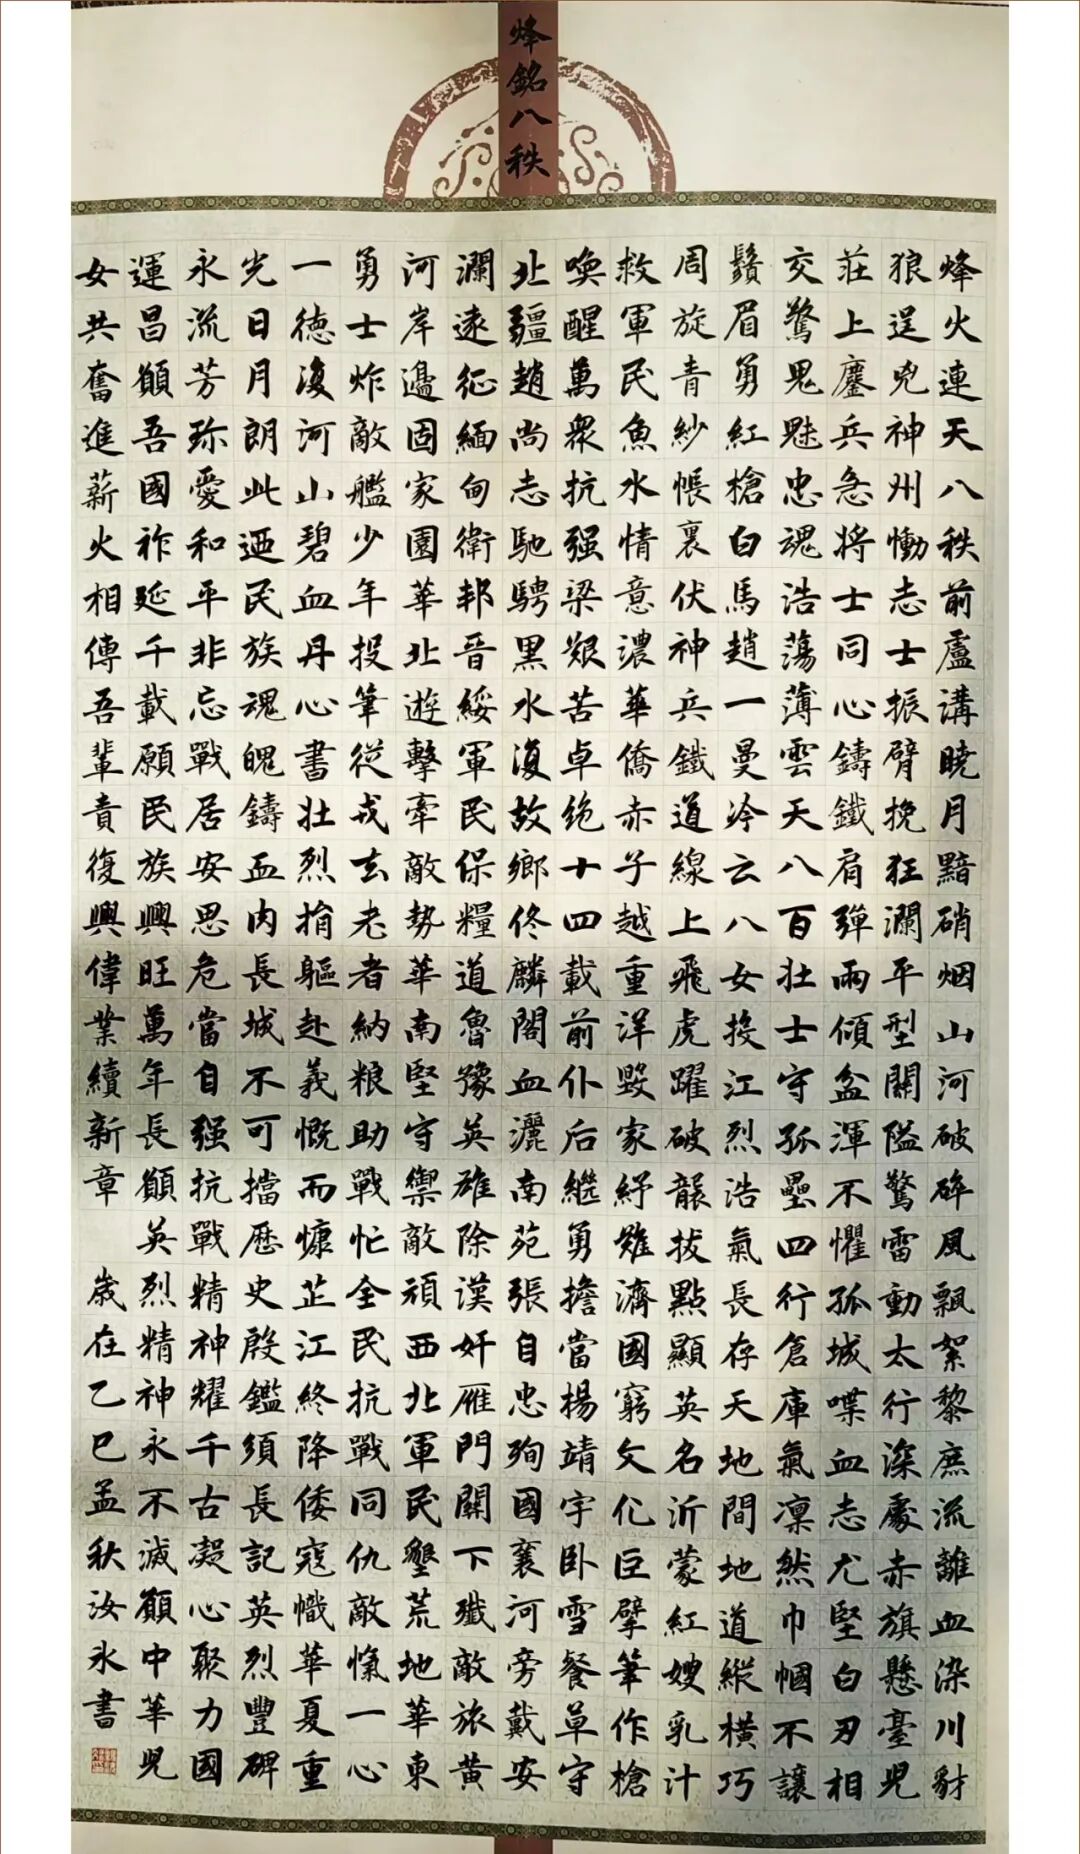 烽銘八秩
烽火連天八秩前盧溝曉月黯硝烟山河破碎風飄絮黎庶流離血染川豺
狼逞兇神州慟志士振臂挽狂瀾平型關隘驚雷動太行深處赤旗懸臺兒
莊上鏖兵急將士同心鑄鐵肩彈雨傾盆渾不懼孤城喋血志尤堅白刃相
交驚鬼魅忠魂浩蕩薄雲天八百壯士守孤壘四行倉庫氣凜然巾幗不讓
鬚眉勇紅槍白馬趙一曼冷云八女投江烈浩氣長存天地間地道縱橫巧
周旋青紗帳裏伏神兵鐵道線上飛虎躍破襲拔點顯英名沂蒙紅嫂乳汁
救軍民魚水情意濃華僑赤子越重洋毀家紓難濟國窮文化巨擘筆作槍
喚醒萬衆抗强梁艱苦卓绝十四載前仆后繼勇擔當楊靖宇卧雪餐草守
北疆趙尚志馳騁黑水復故鄉佟麟閣血灑南苑張自忠殉國襄河旁戴安
瀾遠征緬甸衛邦晉綏軍民保糧道魯豫英雄除漢奸雁門關下殲敵旅黄
河岸邊固家園華北遊擊牽敵勢華南堅守禦敵頑西北軍民墾荒地華東
勇士炸敵艦少年投筆從戎去老者納粮助戰忙全民抗戰同仇敵愾一心
一德復河山碧血丹心書壯烈捐軀赴義慨而慷芷江終降倭寇幟華夏重
光日月朗此迺民族魂魄鑄血肉長城不可擋歷史殷鑑須長記英烈豐碑
永流芳珍愛和平非忘戰居安思危當自强抗戰精神耀千古凝心聚力國
運昌願吾國祚延千載願民族興旺萬年長願英烈精神永不滅願中華兒
女共奮進薪火相傳吾輩責復興偉業續新章 歲在乙巳孟秋汝氷書